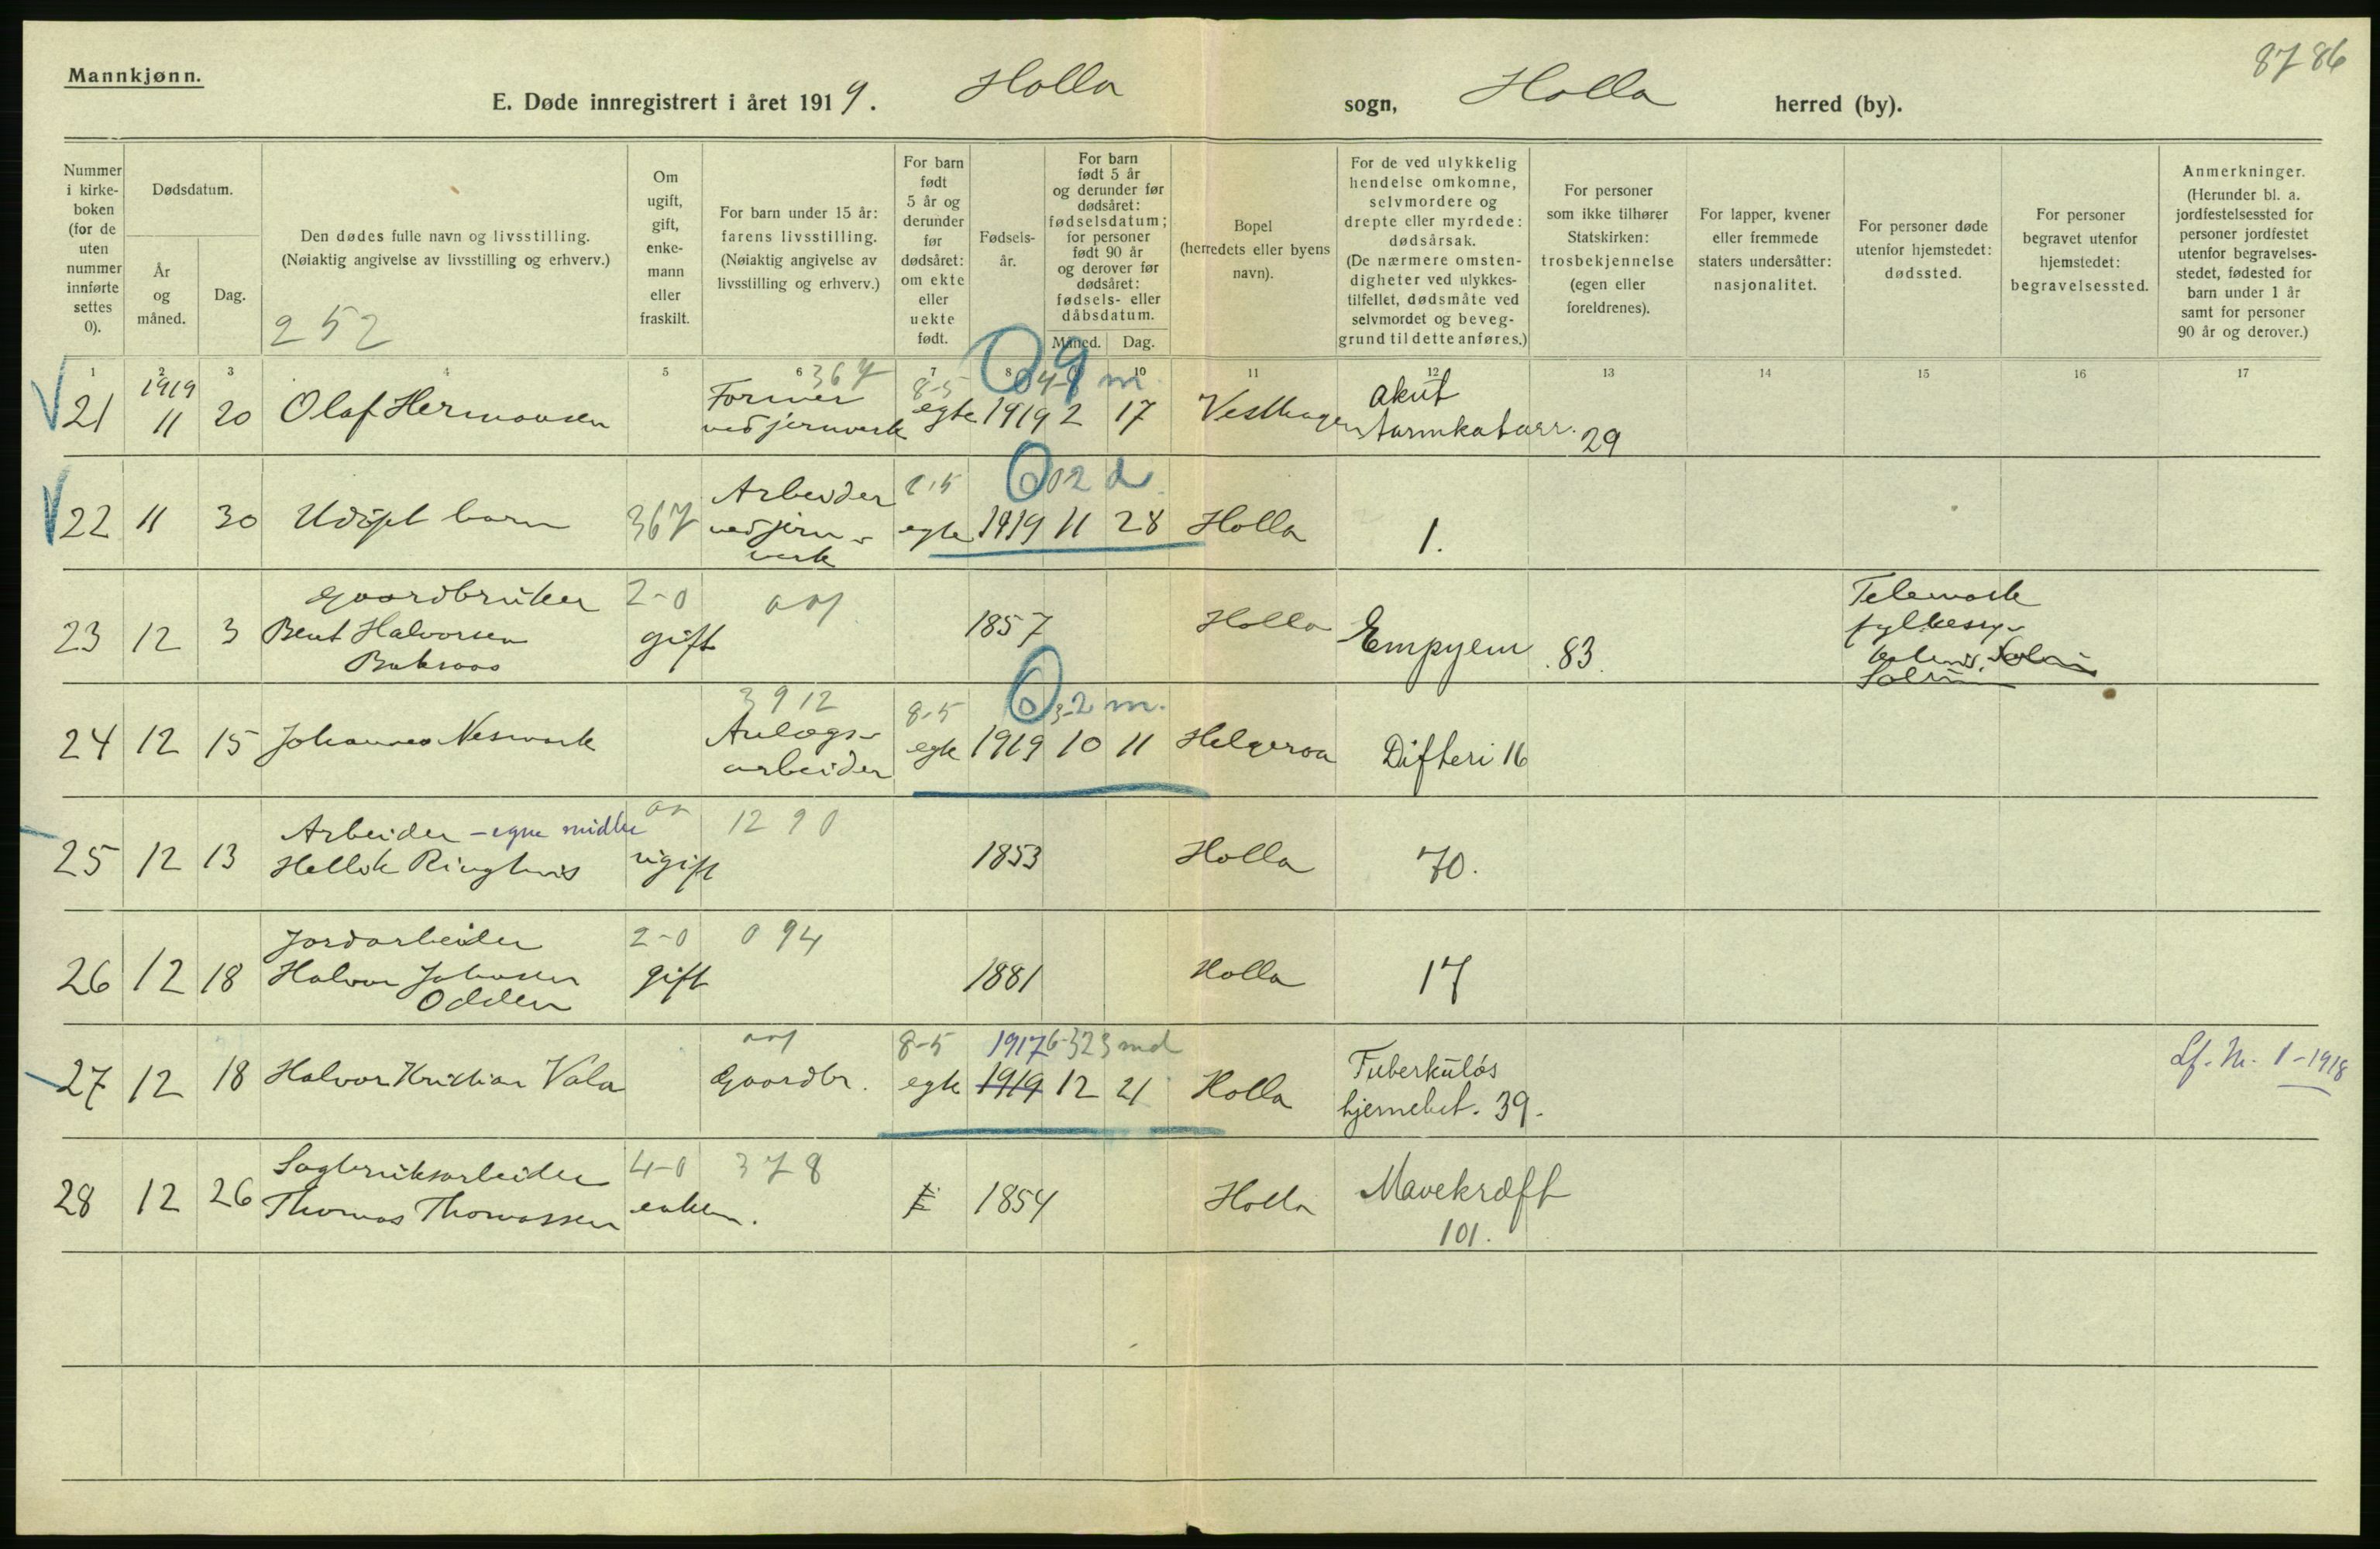 Mannkjønn.
8786
E. Døde innregistrert i året 1919. Holla sogn, Holla herred (by).
Nummer i kirke-boken (for de uten nummer innførte settes 0).
Dødsdatum.
År og måned.
Dag.
Den dødes fulle navn og livsstilling.
(Nøiaktig angivelse av livsstilling og erhverv.)
252
Om ugift, gift, enke-mann eller fraskilt.
For barn under 15 år: farens livsstilling. (Nøiaktig angivelse av livsstilling og erhverv.)
For barn født 5 år og derunder før dødsåret: om ekte eller uekte født.
Fødsels-år.
For barn født 5 år og derunder før dødsåret: fødselsdatum; for personer født 90 år og derover før dødsåret: fødsels- eller dåbsdatum.
Måned. Dag.
Bopel (herredets eller byens navn).
For de ved ulykkelig hendelse omkomne, selvmordere og drepte eller myrdede: dødsårsak. (De nærmere omsten-digheter ved ulykkes-tilfellet, dødsmåte ved selvmordet og beveg-grund til dette anføres.)
For personer som ikke tilhører Statskirken: trosbekjennelse (egen eller foreldrenes).
For lapper, kvener eller fremmede staters undersåtter: nasjonalitet.
For personer døde utenfor hjemstedet: dødssted.
For personer begravet utenfor hjemstedet: begravelsessted.
Anmerkninger. (Herunder bl. a. jordfestelsessted for personer jordfestet utenfor begravelses-stedet, fødested for barn under 1 år samt for personer 90 år og derover.)
1 2 3 4 5 6 7 8 9 10 11 12 13 14 15 16 17
1919 367 8-5 m. akut
21 11 20 Olaf Hermansen Former ved jernverk egte 1919 2 17 Vesthagen tarmkatarr. 29
8-5 02 d.
22 11 30 Udøpt barn 367 Arbeider ved jern-verk egte 1919 11 28 Holla 1.
Gaardbruker 2-0
23 12 3 Bent Halvorsen gift 1857 Holla Empyem 83. Telemark fylkessy-
3912 8-5 3-2 m.
24 12 15 Johannes Nesmark Anlægs-arbeider egte 1919 10 11 Helgeroa Difteri 16
Arbeider - egne midler 1290
25 12 13 ugift 1853 Holla 70.
Jordarbeider 2-0 094
26 12 18 Halvor Johnsen Odden gift 1881 Holla 17
8-5 1917
27 12 18 Halvor Kristian Vala Gaardbr. egte 1919 12 21 Holla Tuberkuløs hjernebet. 39. Lf. Nr. 1-1918
Sagbruksarbeider 4-0 378
28 12 26 Thomas Thomassen enkem. E 1854 Holla Mavekræft
101.